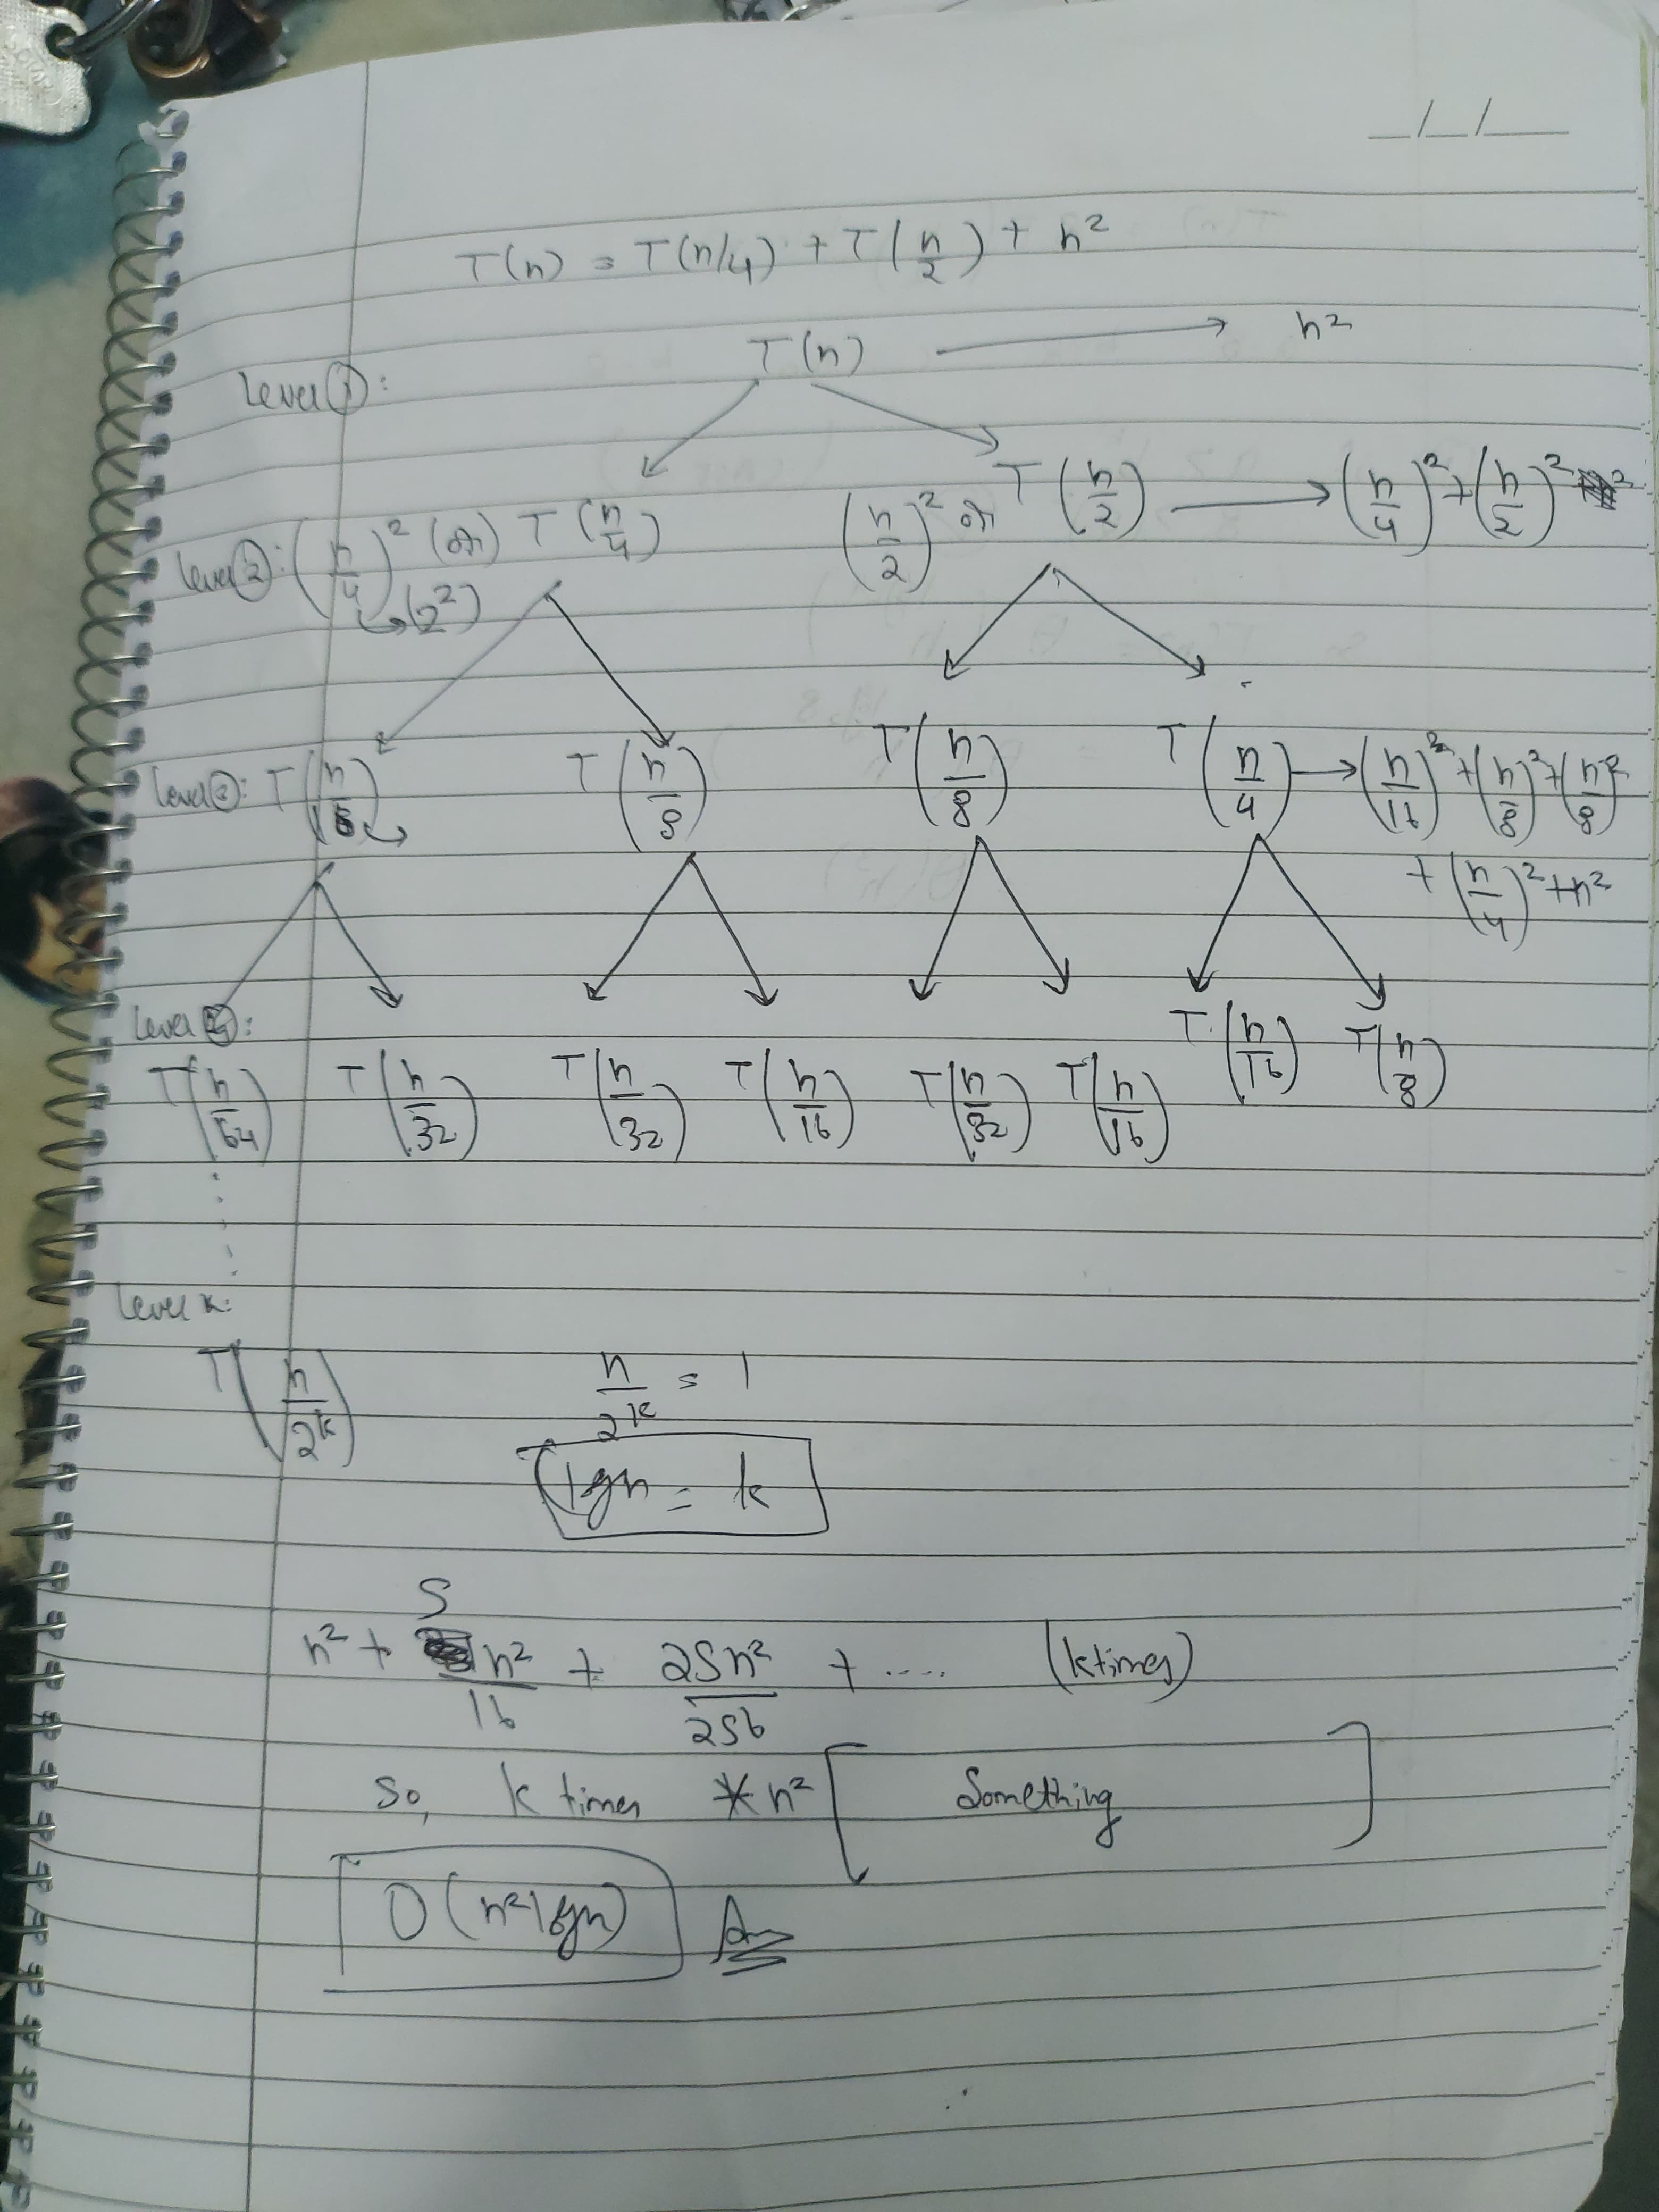 _/_/__
T(n) = T(n/4) + T(n/2) + n²
T(n) → n²
Level ①:
Level ②: (n/4)² (or) T(n/4) (n/2)² or T(n/2) → (n/4)² + (n/2)²
↳ (2²)
Level ③: T(n/16) T(n/8) T(n/8) T(n/4) → (n/16)² + (n/8)² + (n/8)²
+ (n/4)² + n²
Level ④:
T(n/64) T(n/32) T(n/32) T(n/16) T(n/32) T(n/16) T(n/16) T(n/8)
Level k:
T(n/2^k) n/2^k = 1
lgn = k
n² + 5n²/16 + 25n²/256 + .... (k times)
so, k times * n² [ Something ]
O(n²lgn) Ans